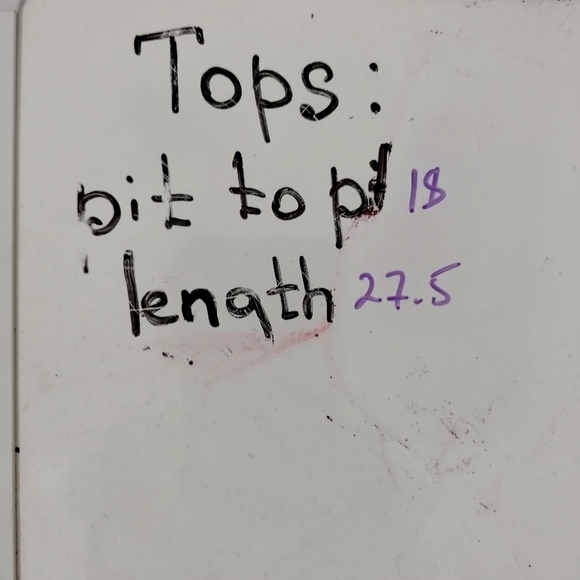 Tops:
pit to pit 18
length 27.5